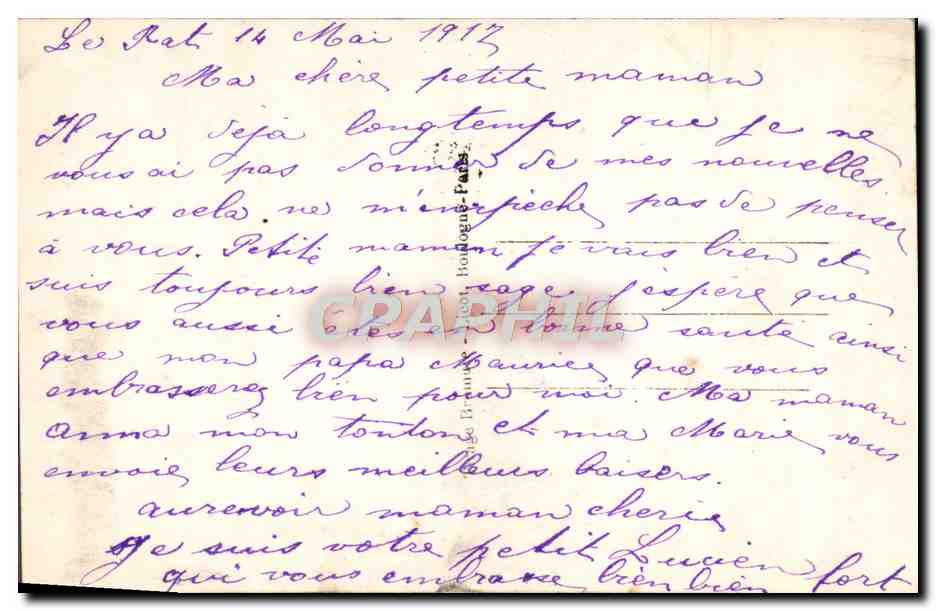 Le Rat 14 Mai 1917
Ma chère petite maman
Il ya déjà longtemps que je ne
vous ai pas donner de mes nouvelles
mais cela ne m'empèche pas de penser
à vous. Petite maman je vais bien et
suis toujours bien sage j'espère que
vous aussi êtes en bonne santé ainsi
que mon papa Maurice que vous
embrasserez bien pour moi. Ma maman
anna mon tonton et ma Marie vous
envoie leurs meilleurs baisers.
aurevoir maman cherie
Je suis votre petit Lucien
qui vous embrasse bien bien fort
CPAPHIL
Boulogne-Paris